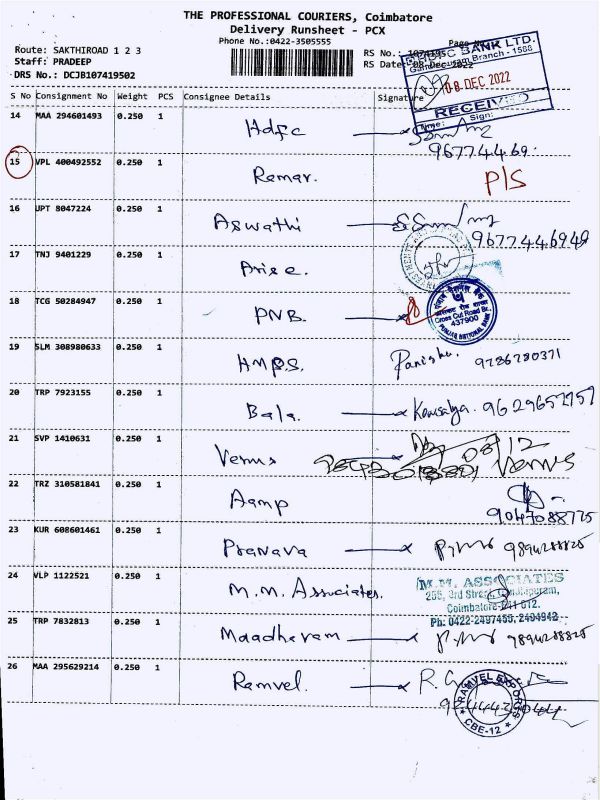 THE PROFESSIONAL COURIERS, Coimbatore
Delivery Runsheet - PCX
Phone No.:0422-3505555
Route: SAKTHIROAD 1 2 3
Staff: PRADEEP
DRS No.: DCJB107419502
RS No.: 107419
RS Date: 08-Dec-2022
BANK LTD.
Branch - 1588
08 DEC 2022
RECEIVED
Time: Sign:
S No Consignment No Weight PCS Consignee Details Signature
14 MAA 294601493 0.250 1 Hdfc
96774469
15 VPL 400492552 0.250 1 Remar. P/S
16 UPT 8047224 0.250 1 Aswathi
9677446949
17 TNJ 9401229 0.250 1 Arise.
18 TCG 50284947 0.250 1 PNB.
पंजाब नैशनल बैंक
Cross Cut Road Br.
437900
PUNJAB NATIONAL BANK
19 SLM 308980633 0.250 1 HMPS. 9786780371
20 TRP 7923155 0.250 1 Bala. Kousalya. 9629657157
21 SVP 1410631 0.250 1 Venus 08/12 Venus
22 TRZ 310581841 0.250 1 Aamp
9047088775
23 KUR 608601461 0.250 1 Pranava 9894288825
24 VLP 1122521 0.250 1 M.M. Associates.
M.M. ASSOCIATES
255, 3rd Street, Gandhipuram,
Coimbatore-641 012.
Ph: 0422-2497455, 2494942
25 TRP 7832813 0.250 1 Maadhavam 9894288825
26 MAA 295629214 0.250 1 Ramvel.
RAMVEL EXPORTS
CBE-12